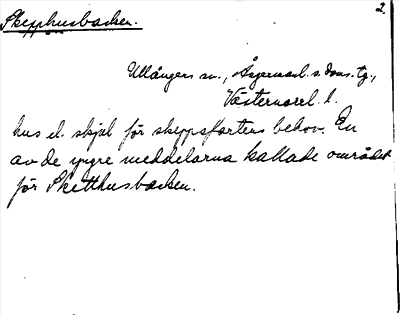 Skepphusbacken. 2.
Ullångers sn., Ångermanl. s. doms. tg.,
Västernorrl. l.
hus el. skjul för skeppsfartens behov. En
av de yngre meddelarna kallade området
för Sketthusbacken.